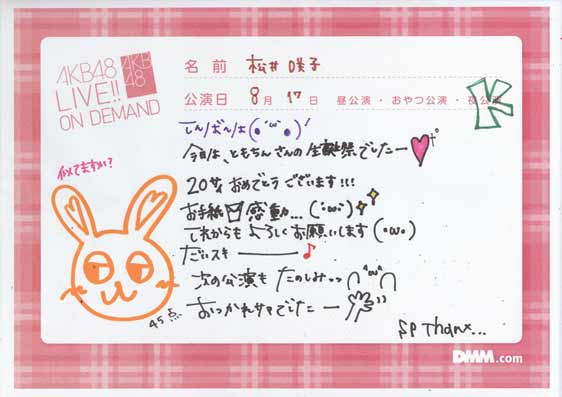 AKB48
LIVE!!
ON DEMAND
AKB
48
名前 松井 咲子
公演日 8月 17日 昼公演・おやつ公演・夜公演
こんばんは(●'ω'●)!
今日は、ともちんさんの生誕祭でしたー
20才おめでとうございます!!!
お手紙 感動...(:'ω':)
これからもよろしくお願いします(・ω・)
だいスキ ――― ♪
似てますか?
次の公演も たのしみッッ ∩^ω^∩
おつかれサマでしたー
45点...
SP Thanx...
DMM.com